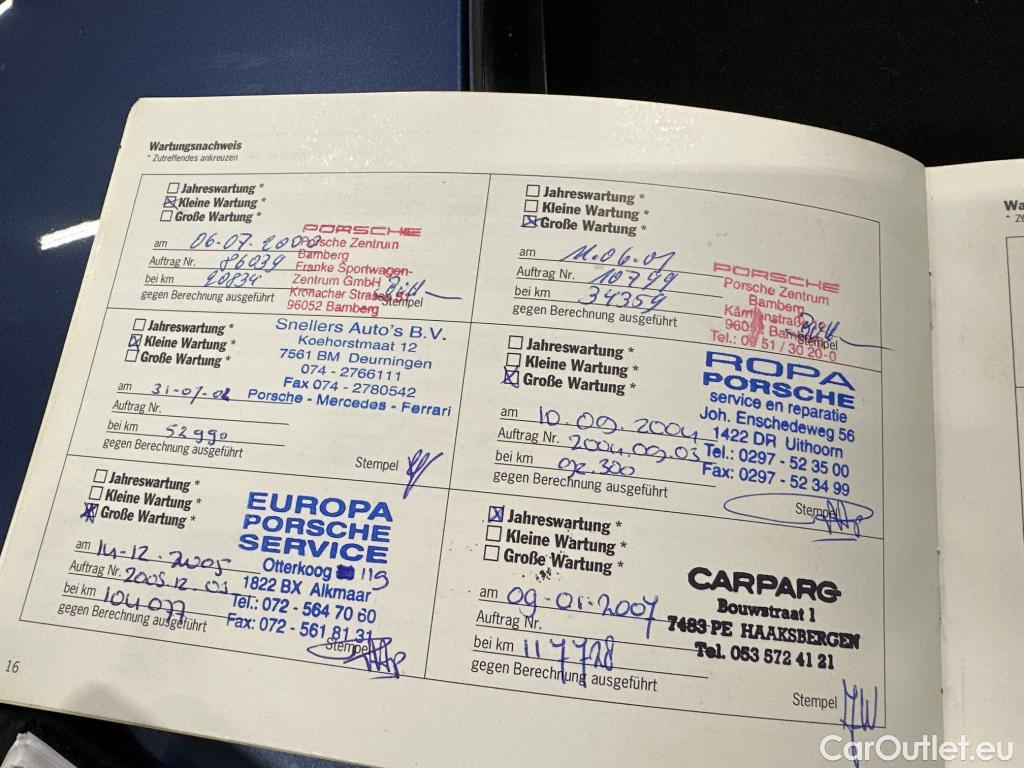 Wartungsnachweis
* Zutreffendes ankreuzen
Jahreswartung *
Kleine Wartung *
Große Wartung *
am 06.07.2000
Auftrag Nr. 86039
bei km 20834
gegen Berechnung ausgeführt
Stempel
PORSCHE
Porsche Zentrum
Bamberg
Franke Sportwagen-
Zentrum GmbH
Kronacher Straße
96052 Bamberg
Jahreswartung *
Kleine Wartung *
Große Wartung *
am 11.06.01
Auftrag Nr. 10799
bei km 34359
gegen Berechnung ausgeführt
Stempel
PORSCHE
Porsche Zentrum
Bamberg
Tel.: 09 51 / 30 20-0
Jahreswartung *
Kleine Wartung *
Große Wartung *
am 31-07-02
Auftrag Nr.
bei km 52990
gegen Berechnung ausgeführt
Stempel
Snellers Auto's B.V.
Koehorstmaat 12
7561 BM Deurningen
074 - 2766111
Fax 074 - 2780542
Porsche - Mercedes - Ferrari
Jahreswartung *
Kleine Wartung *
Große Wartung *
am 10.09.2004
Auftrag Nr. 2004.09.03
bei km 92.300
gegen Berechnung ausgeführt
Stempel
ROPA
PORSCHE
service en reparatie
Joh. Enschedeweg 56
1422 DR Uithoorn
Tel.: 0297 - 52 35 00
Fax: 0297 - 52 34 99
Jahreswartung *
Kleine Wartung *
Große Wartung *
am 14-12-2005
Auftrag Nr. 2005.12.03
bei km 104077
gegen Berechnung ausgeführt
Stempel
EUROPA
PORSCHE
SERVICE
Otterkoog 119
1822 BX Alkmaar
Tel.: 072 - 564 70 60
Fax: 072 - 561 81 31
Jahreswartung *
Kleine Wartung *
Große Wartung *
am 09-01-2007
Auftrag Nr.
bei km 117728
gegen Berechnung ausgeführt
Stempel
CARPARG
Bouwstraat 1
7483 PE HAAKSBERGEN
Tel. 053 572 41 21
16
CarOutlet.eu